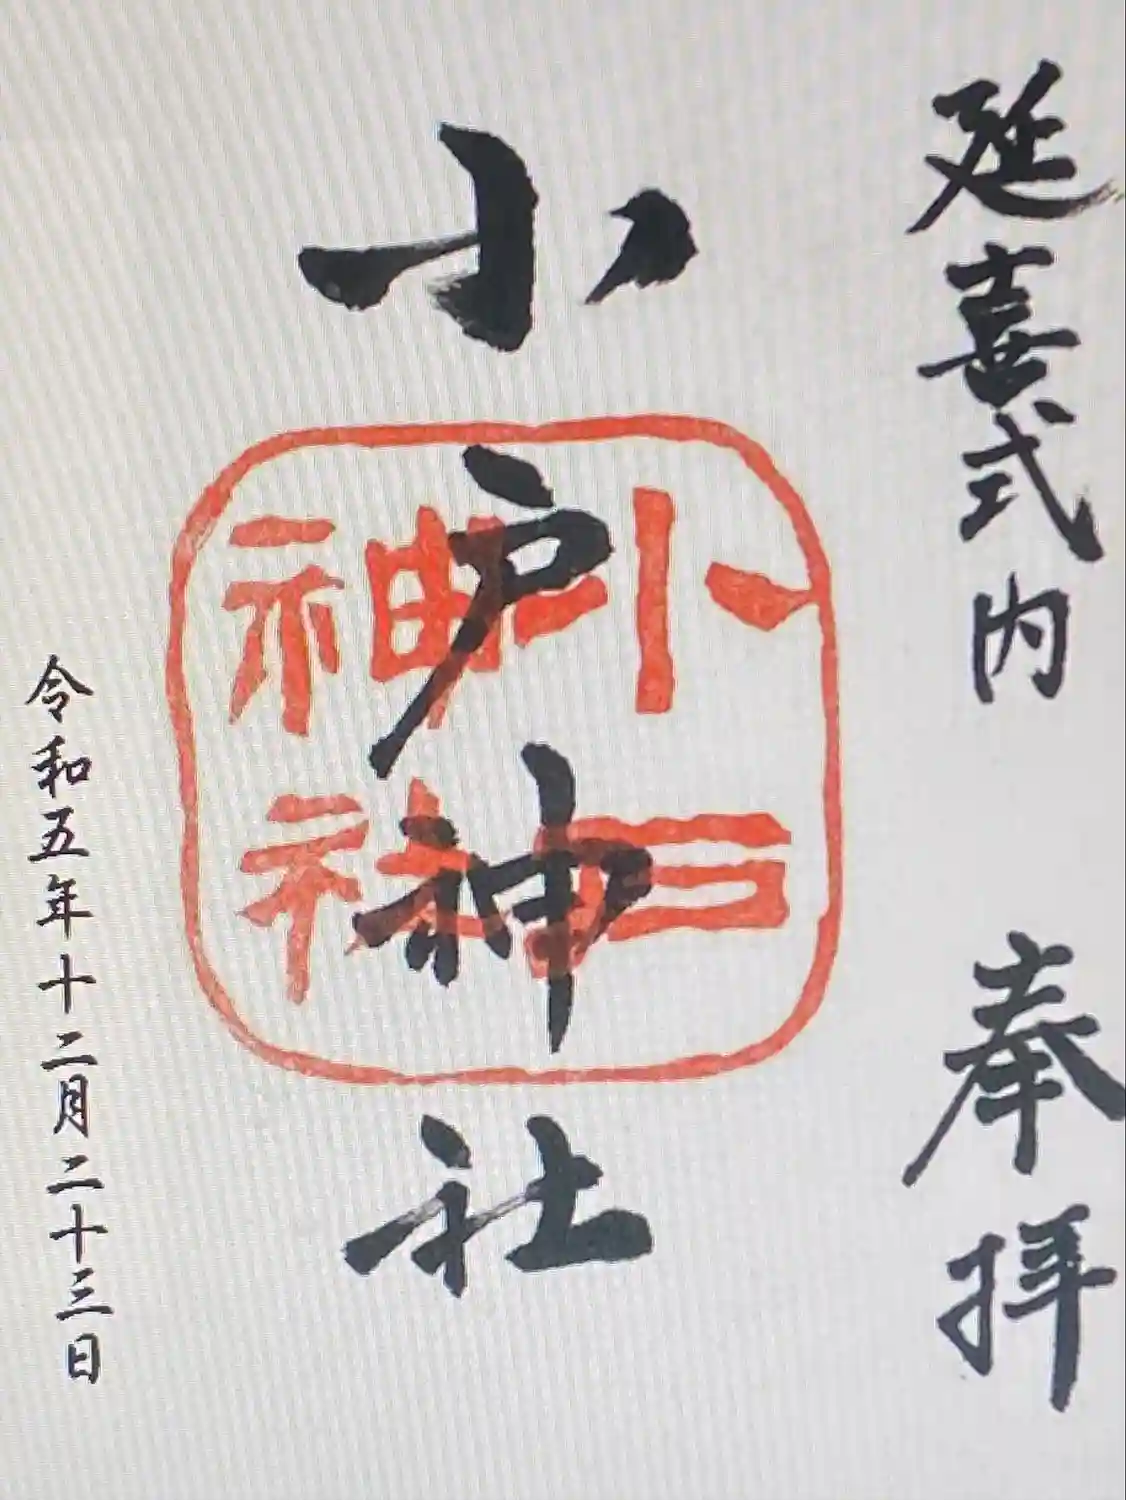 延喜式内 奉拝
小戸神社
小戸
神社
令和五年十二月二十三日